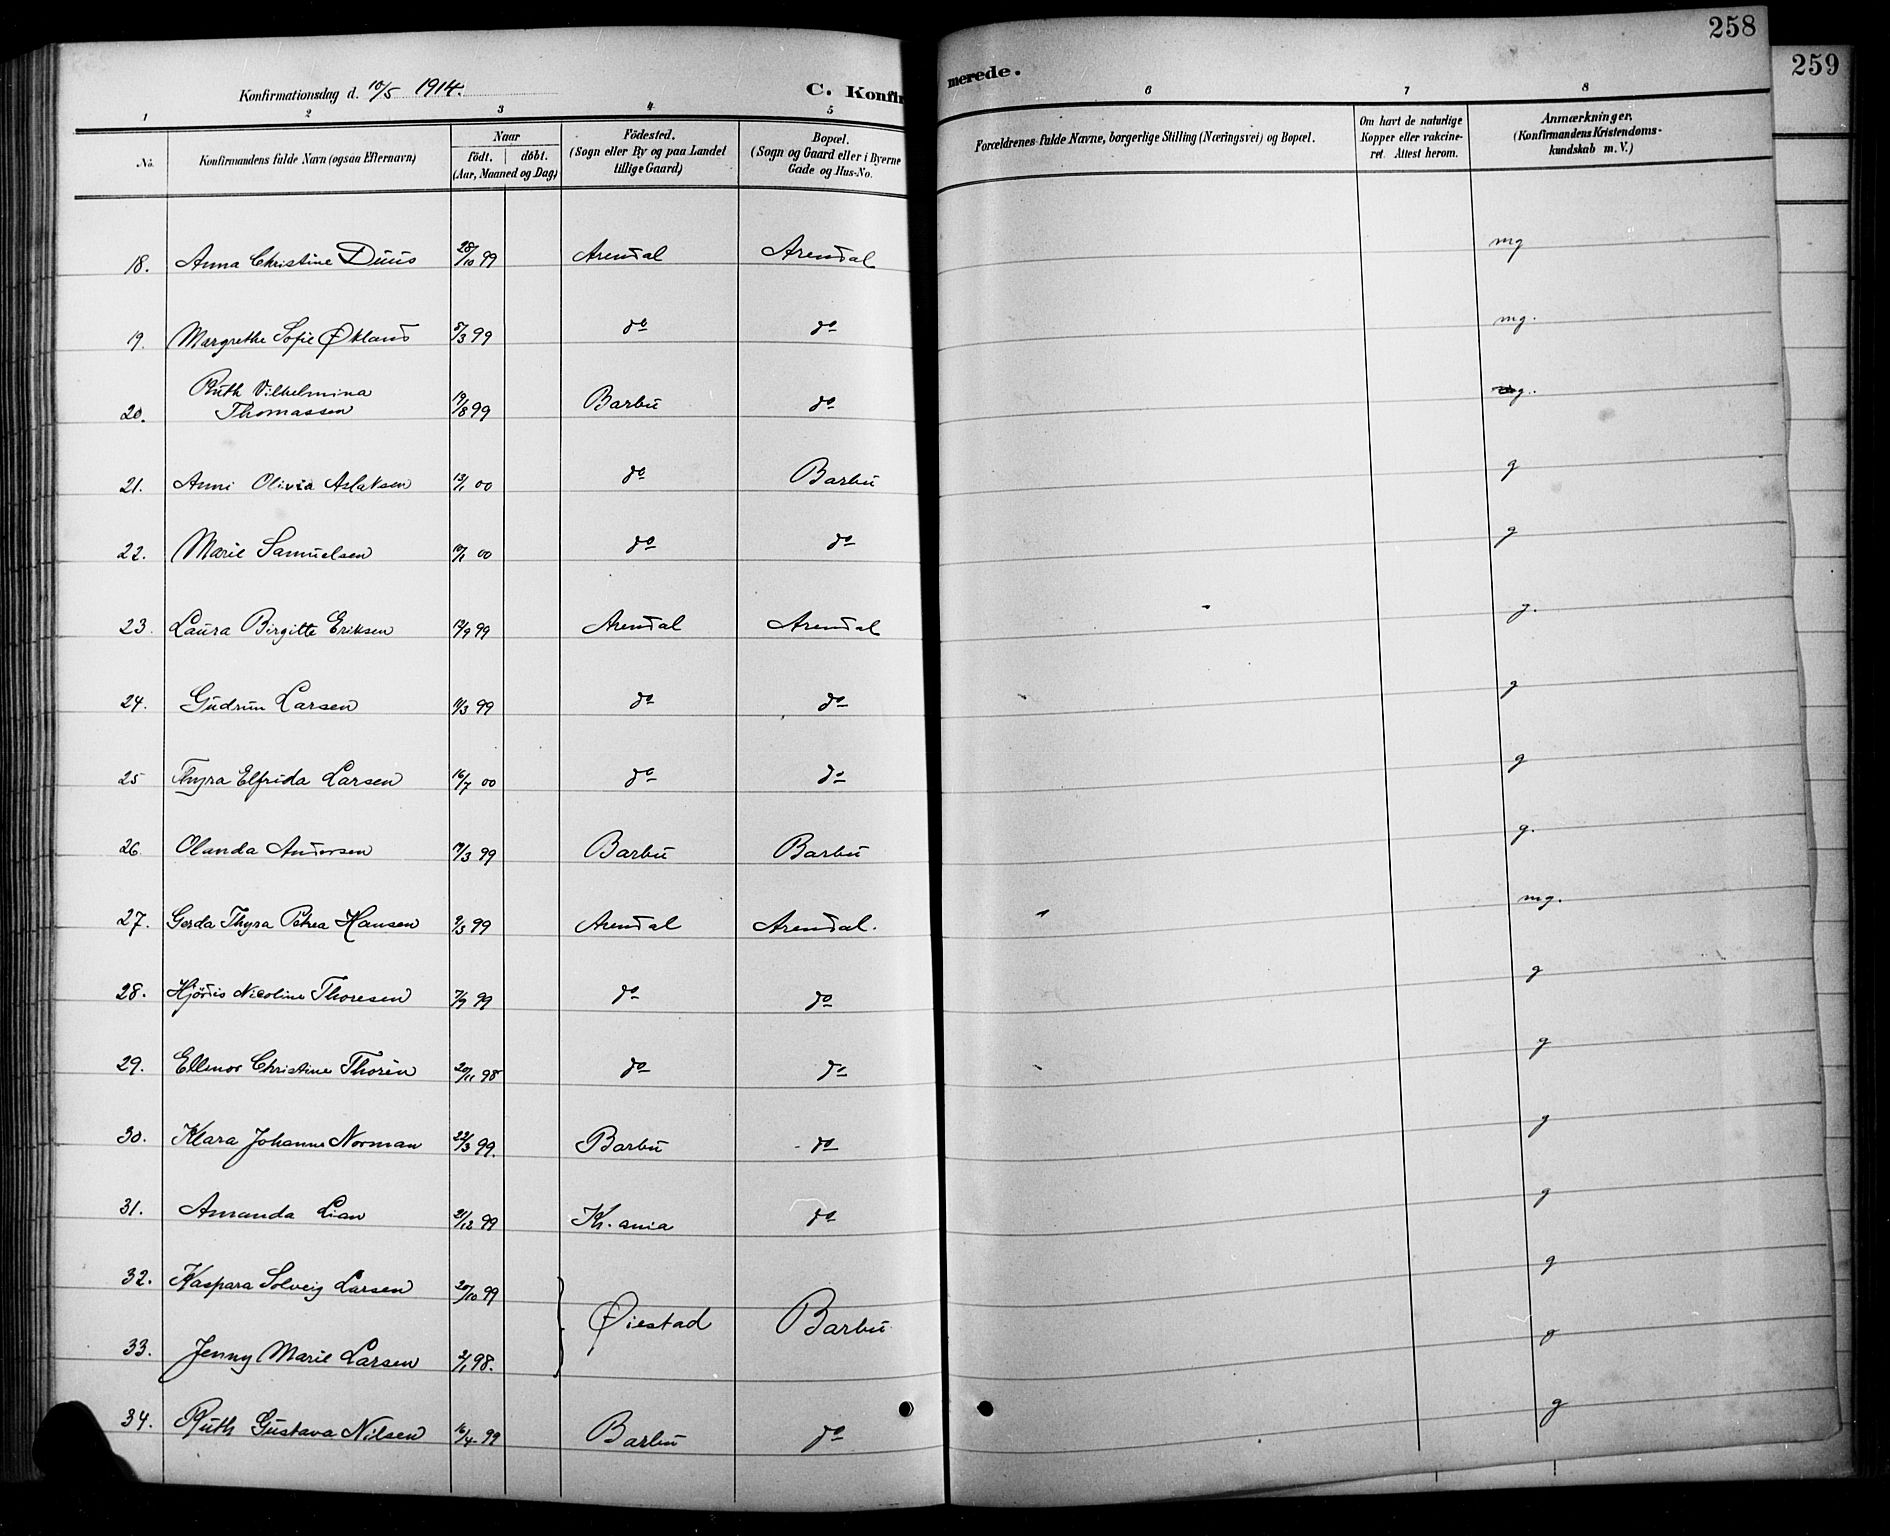 258
259
Konfirmationsdag d. 10/5 1914.
C. Konfirmerede.
1 2 3 4 5 6 7 8
No. Konfirmandens fulde Navn (ogsaa Efternavn) Naar Födt. döbt. (Aar, Maaned og Dag) Födested. (Sogn eller By og paa Landet tillige Gaard) Bopæl. (Sogn og Gaard eller i Byerne Gade og Hus-No. Forældrenes fulde Navne, borgerlige Stilling (Næringsvei) og Bopæl. Om havt de naturlige Kopper eller vakcineret. Attest herom. Anmærkninger. (Konfirmandens Kristendomskundskab m. V.)
18. Anna Christine Duus 28/10 99 Arendal Arendal mg
19. Margrethe Sofie Økland 8/3 99 do do mg.
20. Ruth Vilhelmina Thomassen 19/8 99 Barbu do g.
21. Anni Olivia Aslaksen 13/1 00 do Barbu g
22. Marie Samuelsen 10/1 00 do do g
23. Laura Birgitte Eriksen 12/9 99 Arendal Arendal g.
24. Gudrun Larsen 11/3 99 do do g
25 Thyra Elfrida Larsen 16/7 00 do do g
26. Olanda Andersen 19/3 99 Barbu Barbu g.
27. Gerda Thyra Petrea Hansen 9/3 99 Arendal Arendal. mg.
28. Hjördis Nicoline Thoresen 7/9 99 do do g
29. Ellenor Christine Thorén 20/11 98 do do g
30. Klara Johanne Norman 22/3 99. Barbu do g
31. Amanda Lian 21/12 99 Kr.ania do g
32. Kaspara Solveig Larsen 20/10 99 Øiestad Barbu g
33. Jenny Marie Larsen 2/1 98. g
34. Ruth Gustava Nilsen 16/4 99 Barbu do g